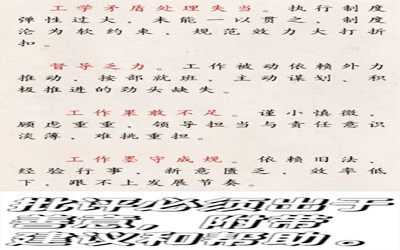 工学矛盾处理失当。执行制度
弹性过大，未能一以贯之，制度
沦为软约束，规范效力大打折
扣。
督导乏力。工作被动依赖外力
推动，按部就班，主动谋划、积
极推进的劲头缺失。
工作果敢不足。谨小慎微，
顾虑重重，领导担当与责任意识
淡薄，难挑重担。
工作墨守成规。依赖旧法、
经验行事，新意匮乏，效率低
下，跟不上发展节奏。
批评必须出于
善意，附带
建议和帮助。